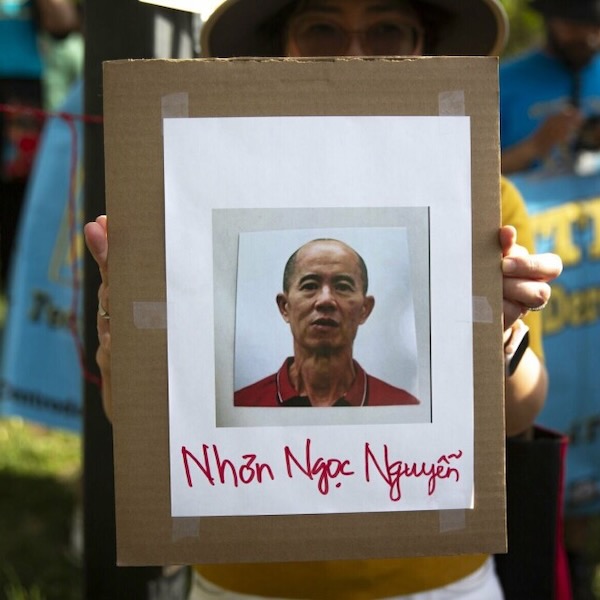 Nhơn Ngọc Nguyễn